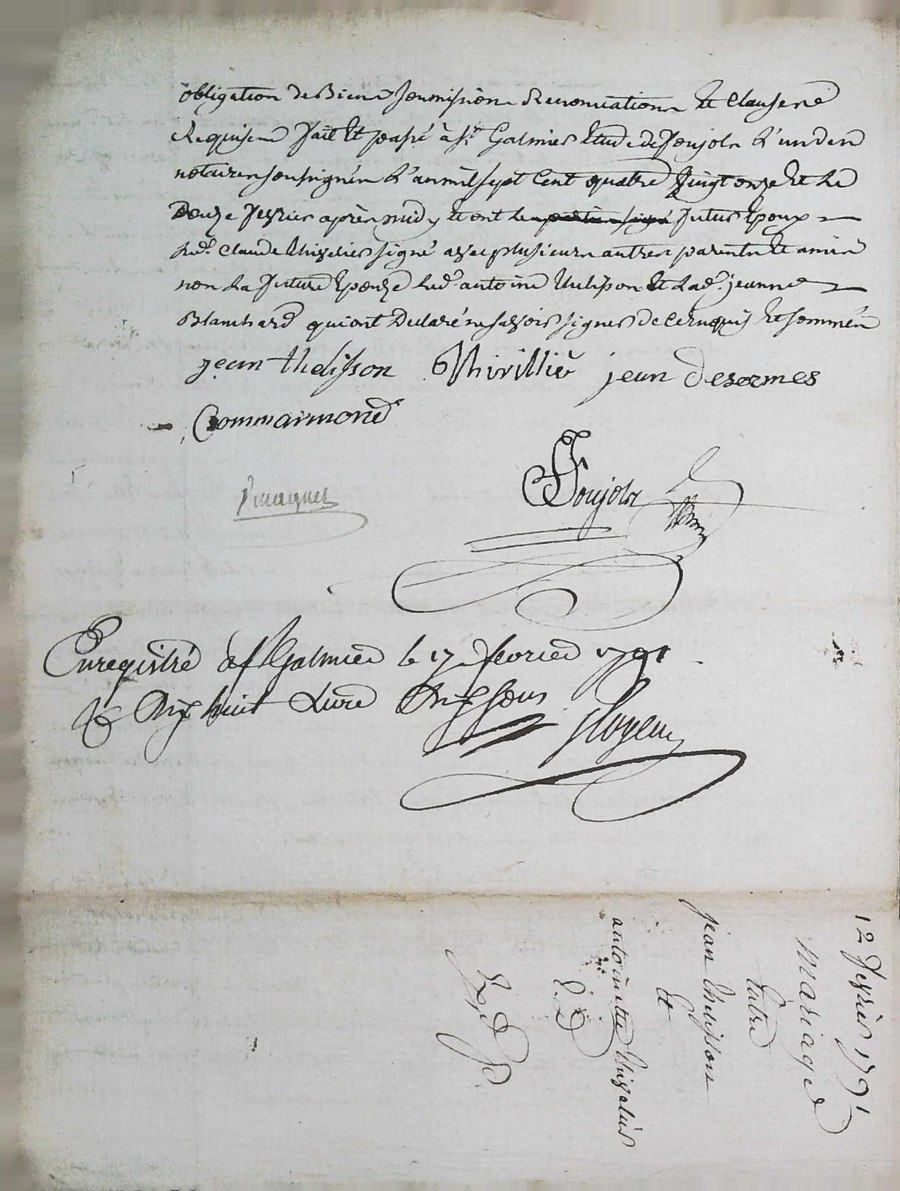 obligation de Biens soumissions Renonciations Et Clauses
Requises fait Et passé à St. Galmier Etude de Soujols L'un des
notaires soussignés L'an mil sept Cent quatre Vingt onze Et Le
Douze fevrier après midy Et ont Le futur Epoux
Led. Claude signé avec plusieurs autres parents Et amis
non La future Epouze Led. antoine thelisson Et Lad. jeanne
Blanchard qui ont Declaré ne savoir signer de ce requis Et sommés
jean thelisson Thivillié jean desormes
Commarmond
Soujols
Enregistré à St Galmier le 17 fevrier 1791
R dix huit Livre dix sous
12 fevrier 1791
Mariage
Entre
jean thelisson
Et
antoinette